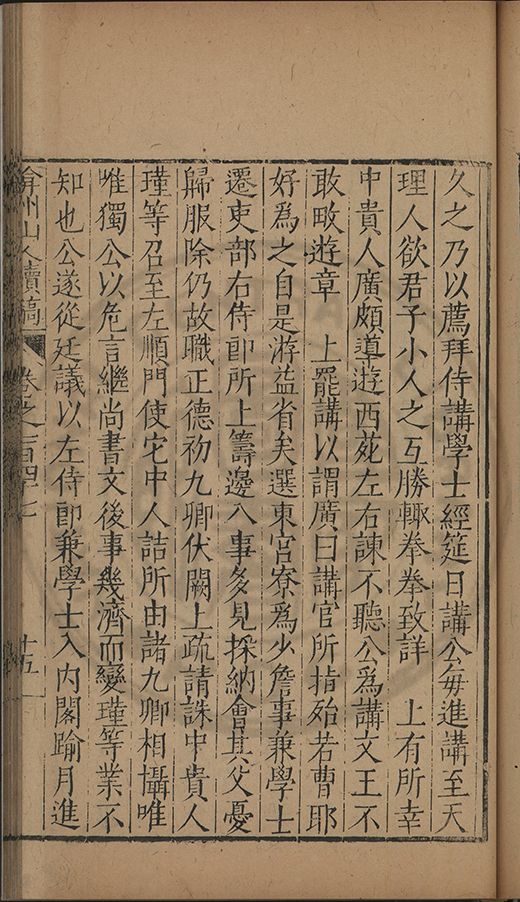 久之乃以薦拜侍講學士經筵日講公每進講至天
理人欲君子小人之互勝輙拳拳致詳　上有所幸
中貴人廣頗導遊西苑左右諫不聽公爲講文王不
敢畋遊章　上罷講以謂廣曰講官所指殆若曹耶
好爲之自是游益省矣選東宮寮爲少詹事兼學士
遷吏部右侍郎所上籌邊八事多見採納會其父憂
歸服除仍故職正德初九卿伏闕上疏請誅中貴人
瑾等召至左順門使它中人詰所由諸九卿相攝唯
唯獨公以危言繼尚書文後事幾濟而變瑾等業不
知也公遂從廷議以左侍郎兼學士入內閣踰月進
弇州山人續稿　卷之一百四十七　十五